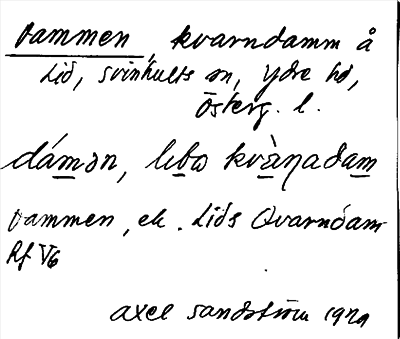 Dammen, kvarndamm å
Lid, Svinhults sn, Ydre hd,
Österg. l.
dámən, libə kvàṇadam
Dammen, el. Lids Qvarndam
Rf V6
Axel Sandström 1929